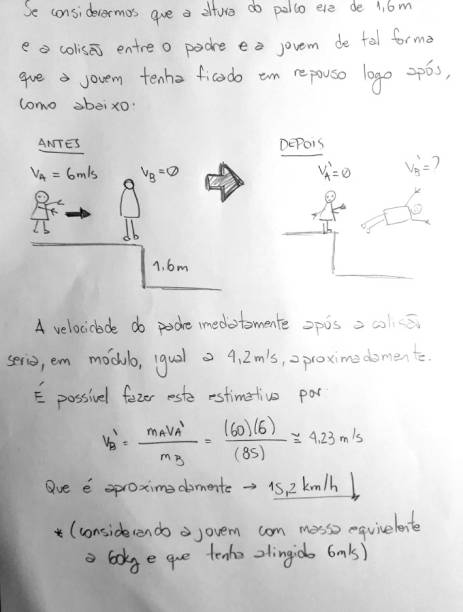 Se considerarmos que a altura do palco era de 1,6m
e a colisão entre o padre e a jovem de tal forma
que a jovem tenha ficado em repouso logo após,
como abaixo:
ANTES
DEPOIS
VA = 6m/s
VB = 0
VA' = 0
VB' = ?
1,6m
A velocidade do padre imediatamente após a colisão
seria, em módulo, igual a 4,2m/s, aproximadamente.
É possível fazer esta estimativa por
VB' = mAVA' / mB = (60)(6) / (85) ≅ 4,23 m/s
Que é aproximadamente → 15,2 km/h
* (considerando a jovem com massa equivalente
a 60kg e que tenha atingido 6m/s)